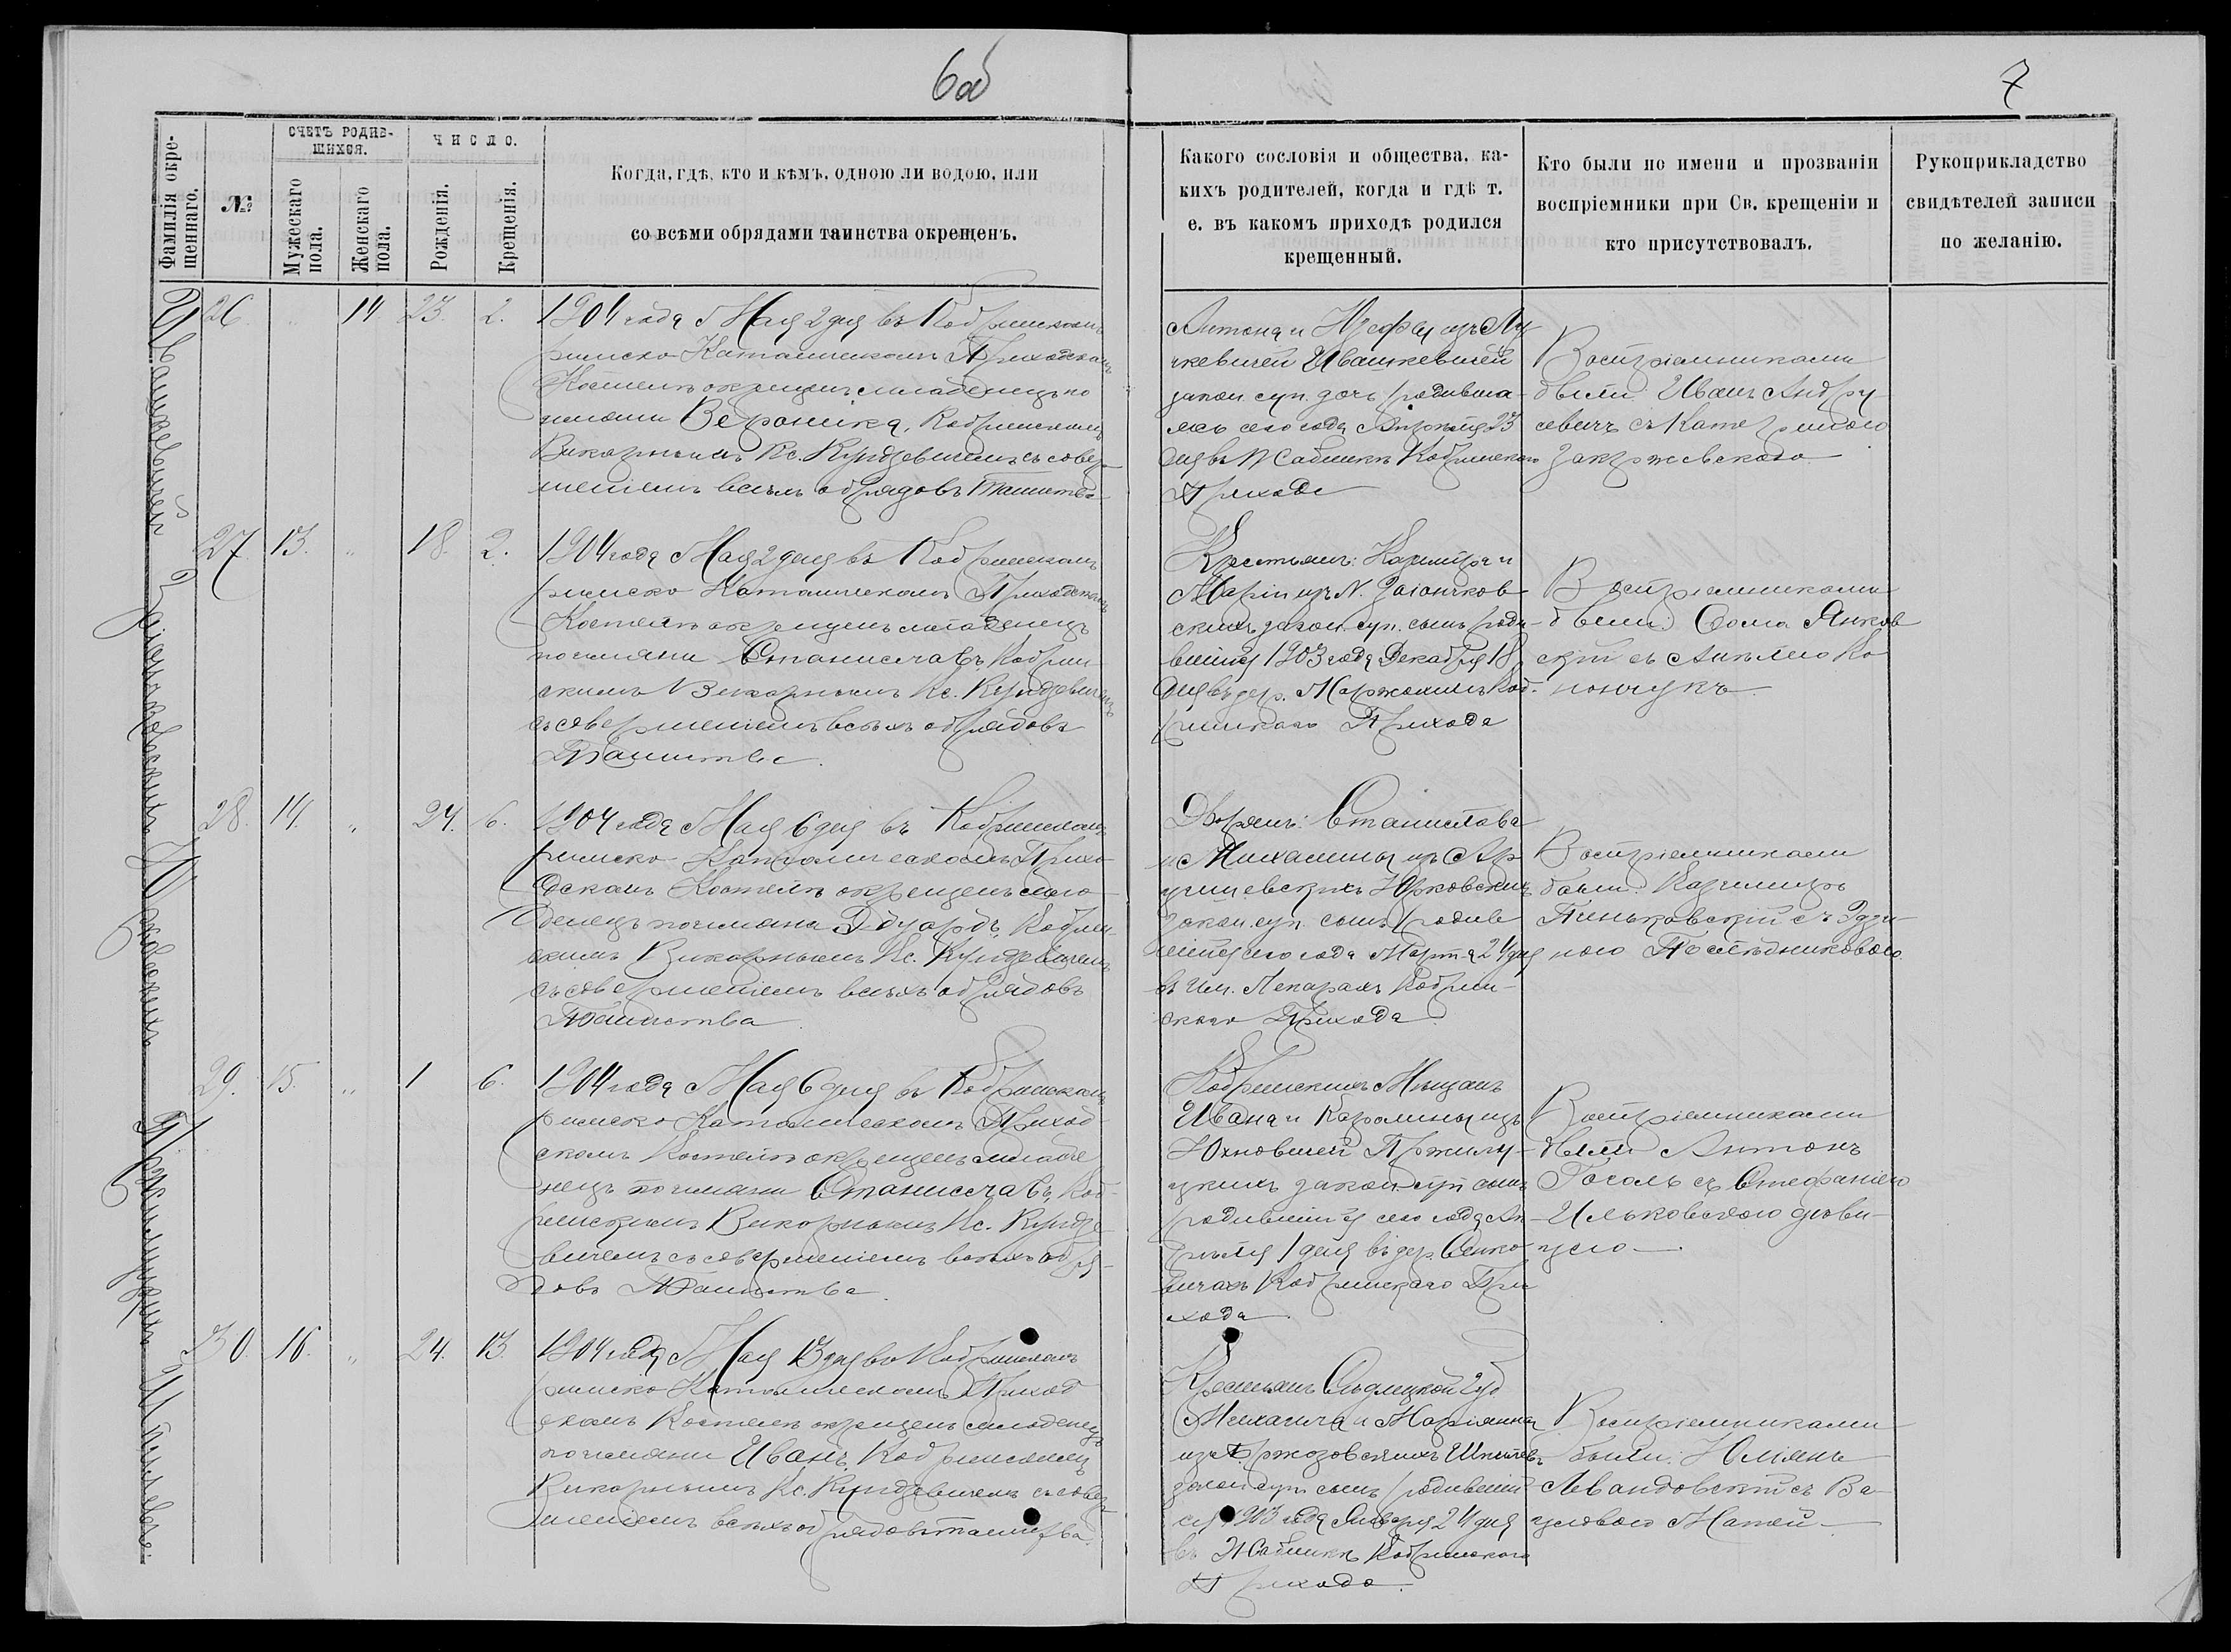 6об
7
Фамилія окре-
щеннаго.
№
СЧЕТЪ РОДИВ-
ШИХСЯ.
Мужескаго
пола.
Женскаго
пола.
ЧИСЛО.
Рожденія.
Крещенія.
Когда, гдѣ, кто и кѣмъ, одною ли водою, или
со всѣми обрядами таинства окрещенъ.
Какого сословія и общества, ка-
кихъ родителей, когда и гдѣ т.
е. въ какомъ приходѣ родился
крещенный.
Кто были по имени и прозванію
воспріемники при Св. крещеніи и
кто присутствовалъ.
Рукоприкладство
свидѣтелей записи
по желанію.
26. " 14. 23. 2.
1904 года Мая 2 дня въ Кобринскомъ
римско Католическомъ Приходскомъ
Костелѣ окрещенъ младенецъ по
имени Вероника, Кобринскимъ
Викарнымъ Кс. Кундзевичемъ съ совер-
шеніемъ всѣхъ обрядовъ таинства
Антона и Юзефы изъ
Ивашкевичей
закон. суп. дочь родивша-
яся сего года Апрѣля 23
дня въ Кобринскаго
Прихода
Воспріемниками
были: Иванъ Андру
севичъ съ Катериною
Закржевскою
27. 13. " 18. 2.
1904 года Мая 2 дня въ Кобринскомъ
римско Католическомъ Приходскомъ
Костелѣ окрещенъ младенецъ
по имени Станиславъ, Кобрин-
скимъ Викарнымъ Кс. Кундзевичемъ
съ совершеніемъ всѣхъ обрядовъ
Таинства.
Крестьянъ: Казимира и
Маріи изъ N. Заіончков-
скихъ закон. суп. сынъ роди-
вшійся 1903 года Декабря 18
дня въ дер. Коб-
ринскаго Прихода
Воспріемниками
были: Ѳома Янков
скій съ
28. 14. " 24. 6.
1904 года Мая 6 дня въ Кобринскомъ
римско Католическомъ Прихо-
дскомъ Костелѣ окрещенъ мла-
денецъ по имени Эдуардъ, Кобрин-
скимъ Викарнымъ Кс. Кундзевичемъ
съ совершеніемъ всѣхъ обрядовъ
Таинства
Дворянъ: Станислава
и Михалины изъ
Юрковскихъ
закон. суп. сынъ родив
шійся сего года Марта 24 дня
въ им. Лепарахъ Кобрин-
скаго Прихода.
Воспріемниками
были: Казимиръ
Пеньковскій съ
29. 15. " 1 6.
1904 года Мая 6 дня въ Кобринскомъ
римско Католическомъ Приход-
скомъ Костелѣ окрещенъ младе
нецъ по имени Станиславъ, Коб-
ринскимъ Викарнымъ Кс. Кундзе-
вичемъ съ совершеніемъ всѣхъ обря-
довъ Таинства.
Кобринскихъ Мѣщанъ
Ивана и Каролины изъ
Юхновичей Пржилу-
цкихъ закон. суп. сынъ
родившійся сего года Ап-
рѣля 1 дня въ дер.
Кобринскаго При
хода.
Воспріемниками
были Антонъ
Гоголь съ Стефаніею
Ильковскою дѣви-
цею.
30. 16. " 24. 13.
1904 года Мая 13 дня въ Кобринскомъ
римско Католическомъ Приход
скомъ Костелѣ окрещенъ младенецъ
по имени Иванъ, Кобринскимъ
Викарнымъ Кс. Кундзевичемъ съ совер-
шеніемъ всѣхъ обрядовъ таинства.
Крестьянъ Сѣдлецкой губ
Михаила и Маріянны
закон. суп. сынъ родившій
ся 1903 года Января 24 дня
въ Кобринскаго
Прихода.
Воспріемниками
были: Юліянъ
Левандовскій съ